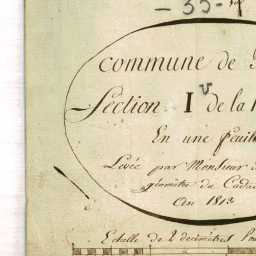 - 35 -
commune de
Section I v de la
En une feuille
Levée par Monsieur
géomètre du Cadas
an 1813
Echelle de 2 decimètres Pour